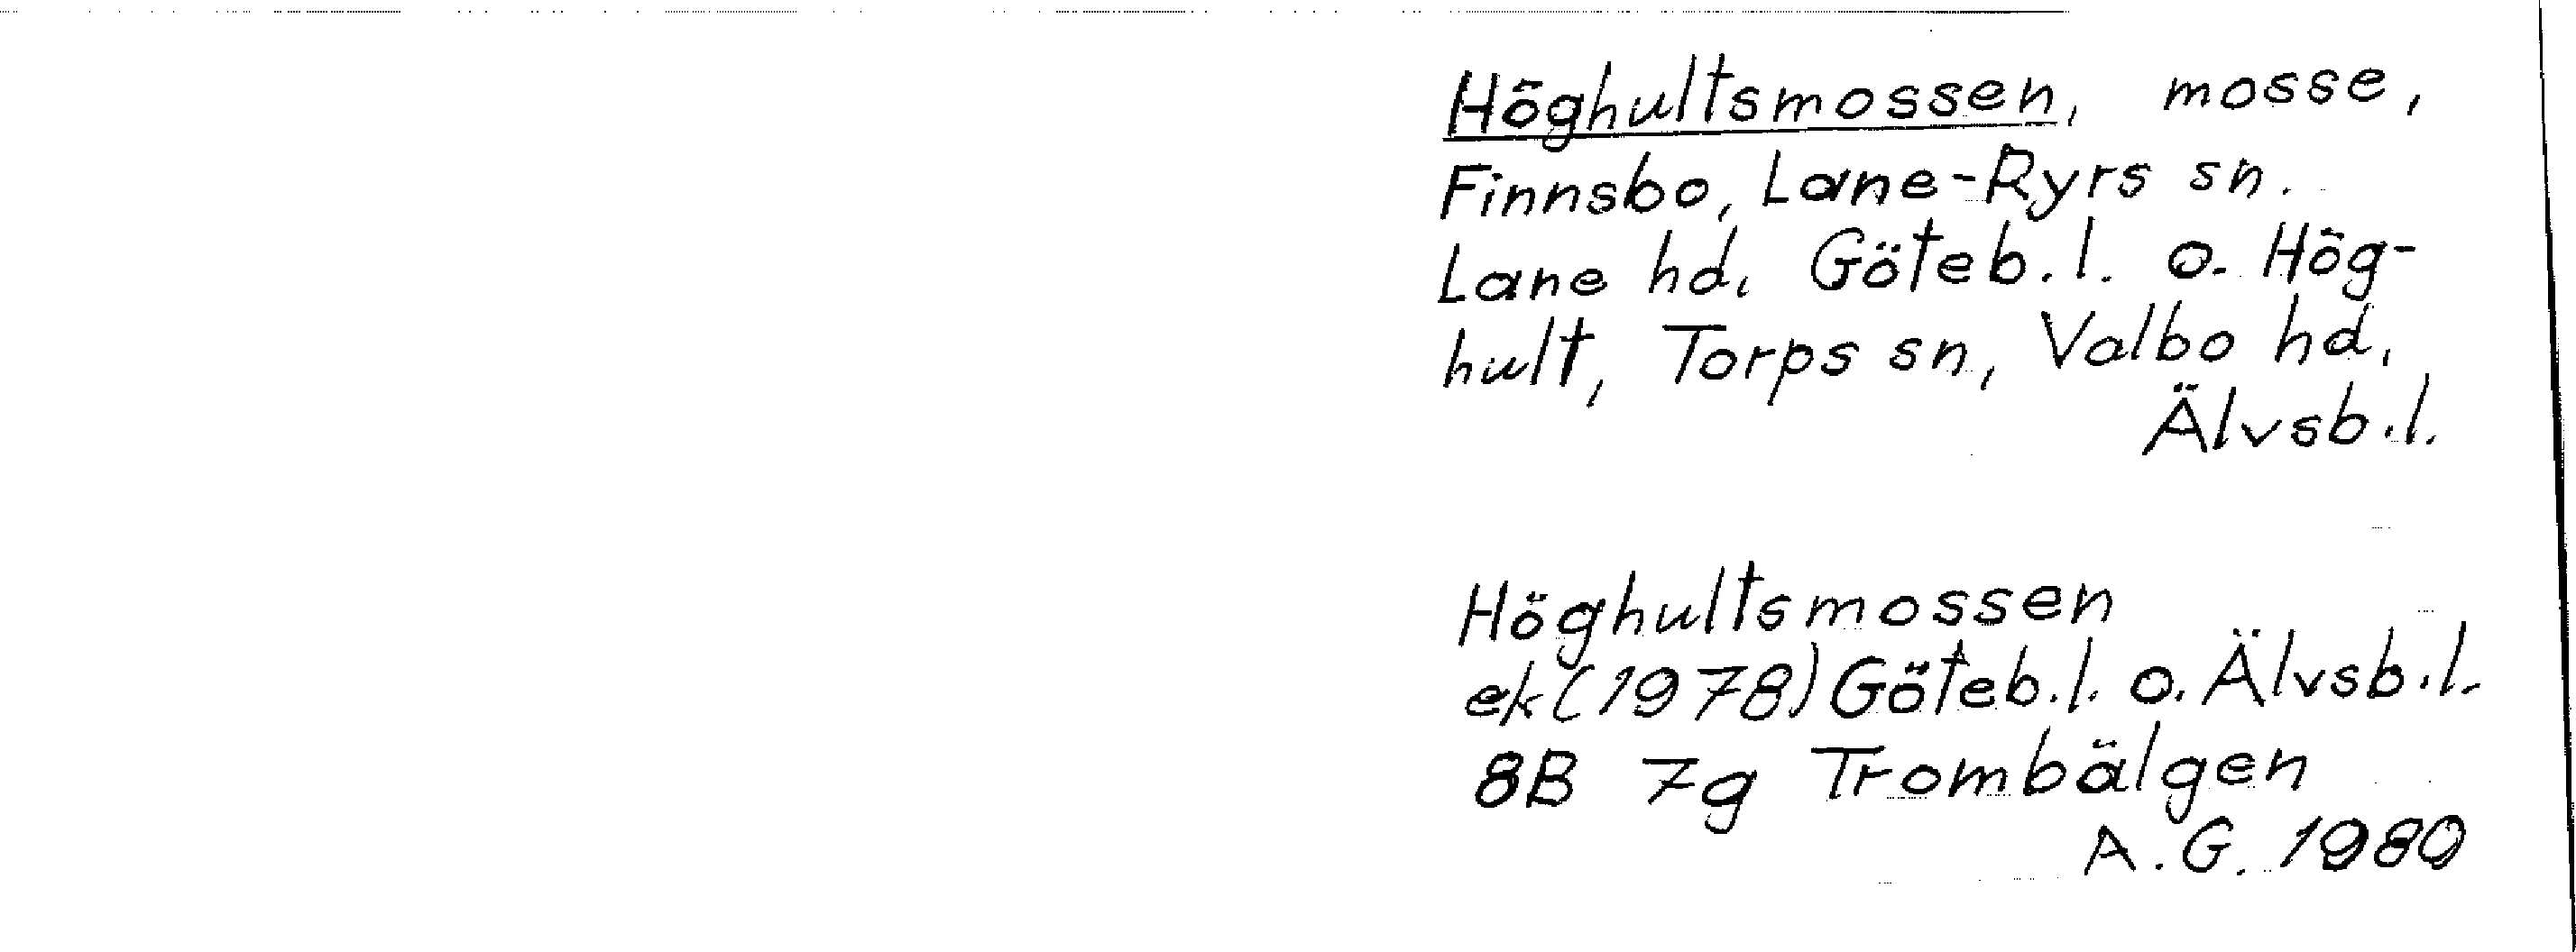 Höghultsmossen, mosse,
Finnsbo, Lane-Ryrs sn.
Lane hd. Göteb.l. o. Hög-
hult, Torps sn, Valbo hd.
Älvsb.l.
Höghultsmossen
ek (1978) Göteb.l. o. Älvsb.l.
8B 7g Trombälgen
A.G. 1980